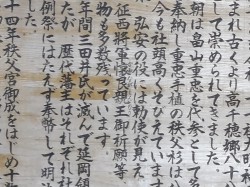 まれ古くより高千穂郷八十
して崇められてきました。
朝は畠山重忠を代参として多
奉納し重忠手植の秩父杉は
今も社頭高くそびえています
、弘安の役には勅使が見え
征西将軍懐良親王御祈願等
物も多数っています。
年間三田井氏が滅んで延岡領
たが、歴代藩主はそれぞれ社
例祭にはたえず奉幣して明治
十四年秩父宮御成をはじめ